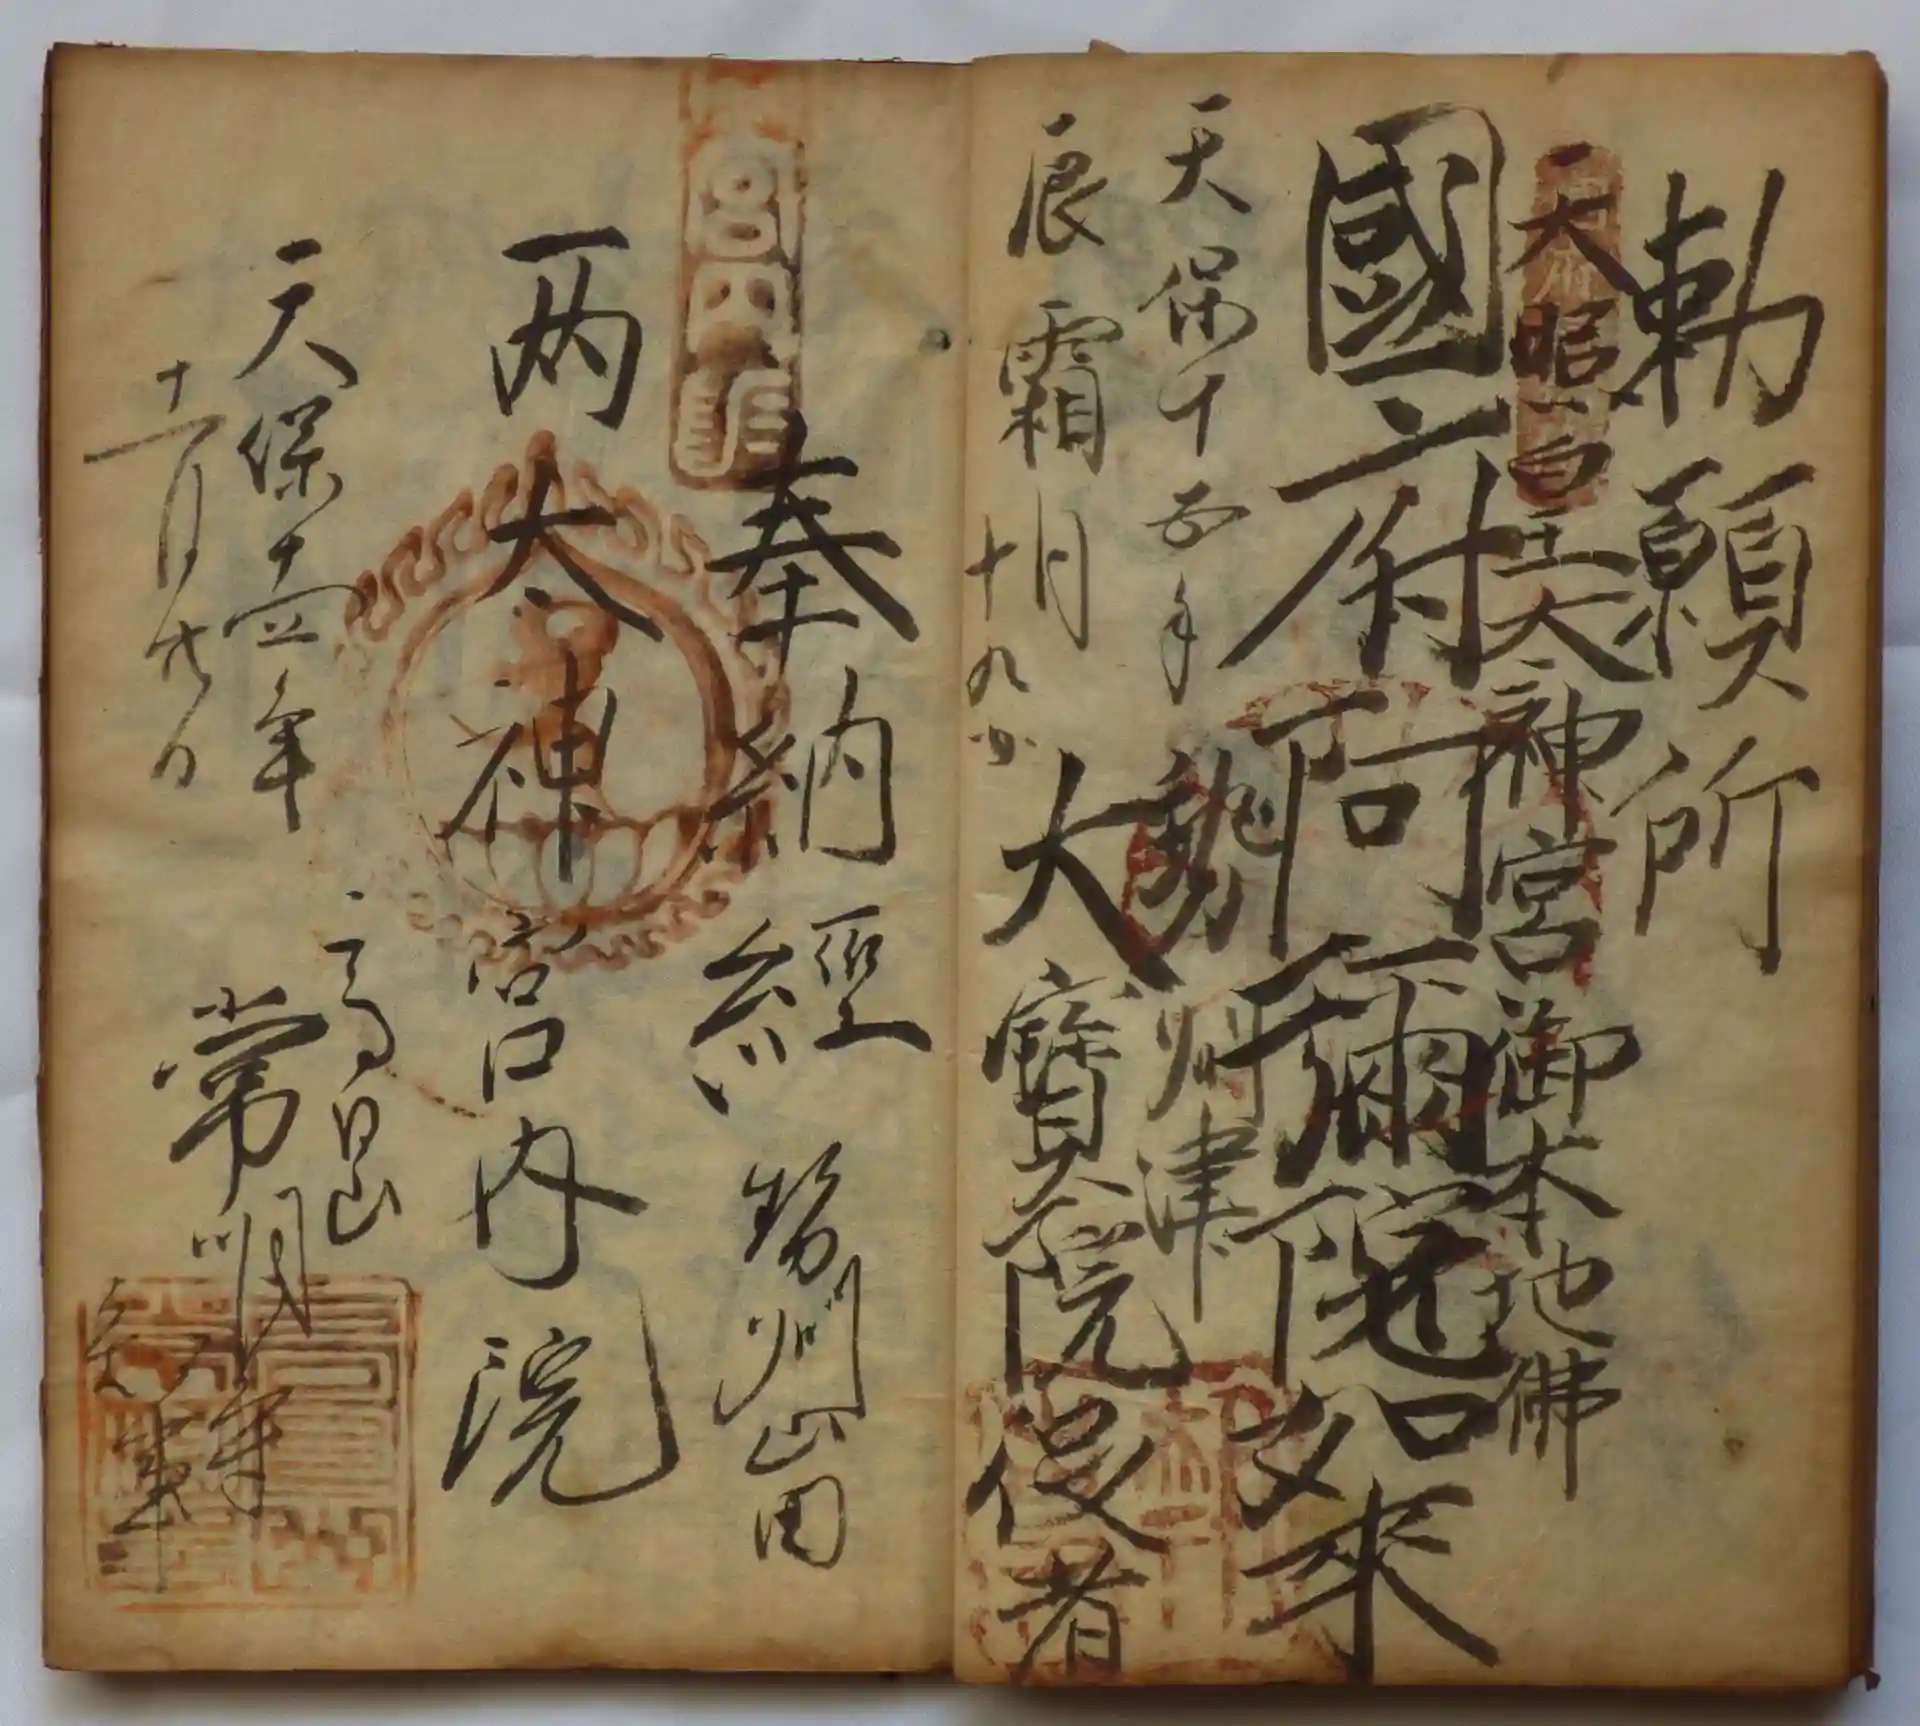 勅願所
天照皇太神宮御本地佛
國府阿彌陀如來
天保十五年
勢州津
辰霜月十九日
大寶院役者
奉納經
勢州山田
両大神
宮内院
天保十五年
十一月廿八日
高日山
常明寺